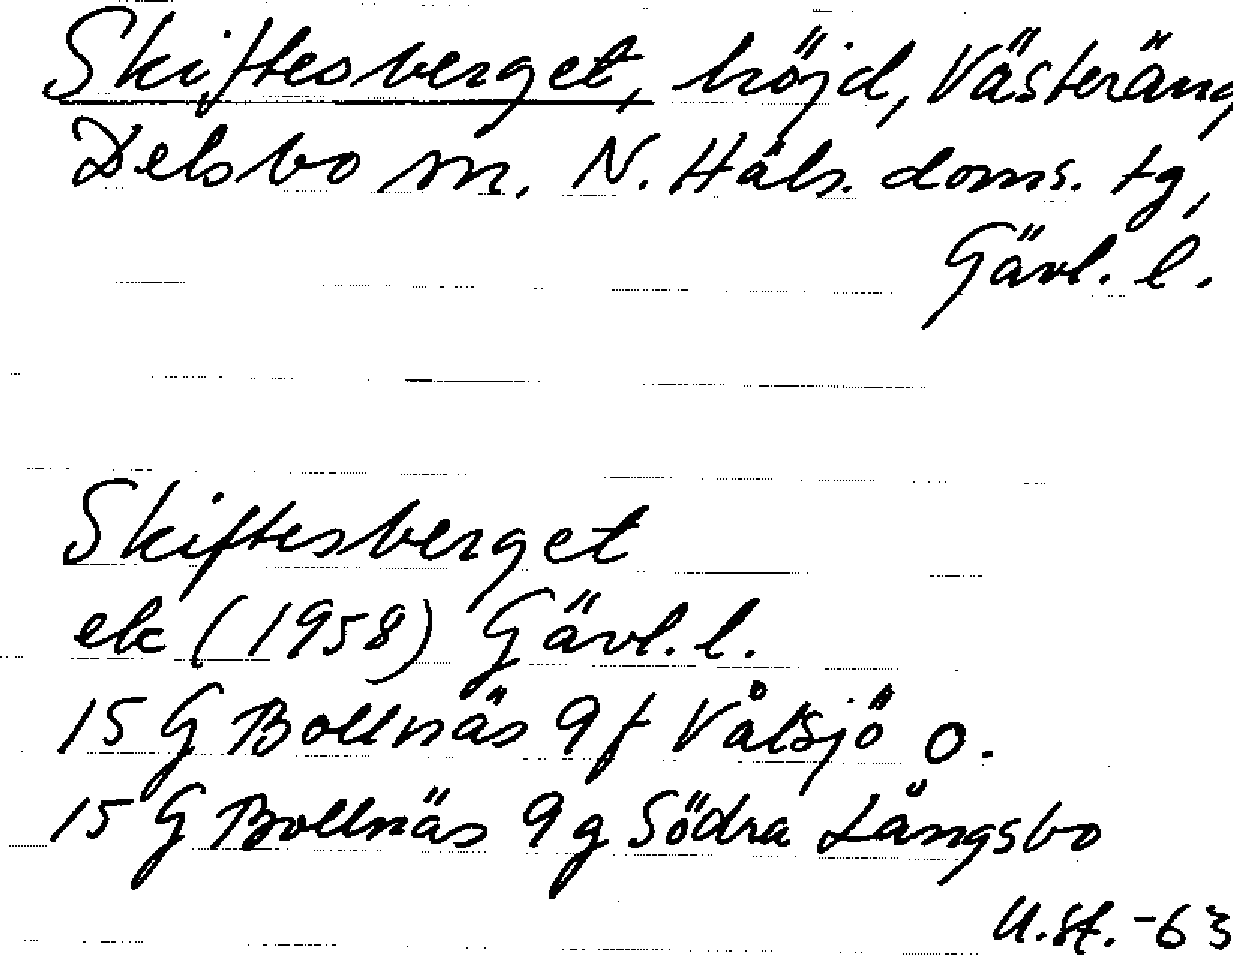 Skiftesberget, höjd, Västeräng,
Delsbo sn. N. Häls. doms. tg,
Gävl. l.
Skiftesberget
ek (1958) Gävl. l.
15 G Bollnäs 9 f Våtsjö o.
15 G Bollnäs 9 g Södra Långsbo
U.St. -63